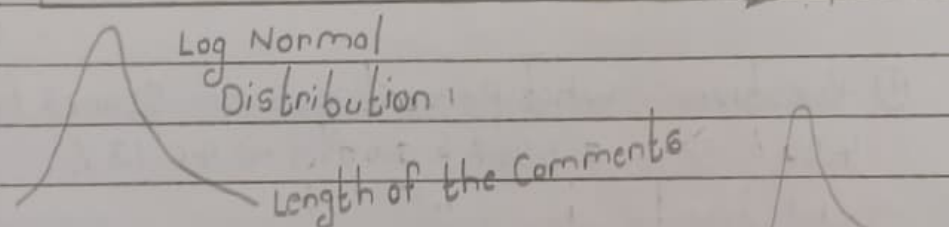 Log Normal
Distribution:
Length of the Comments